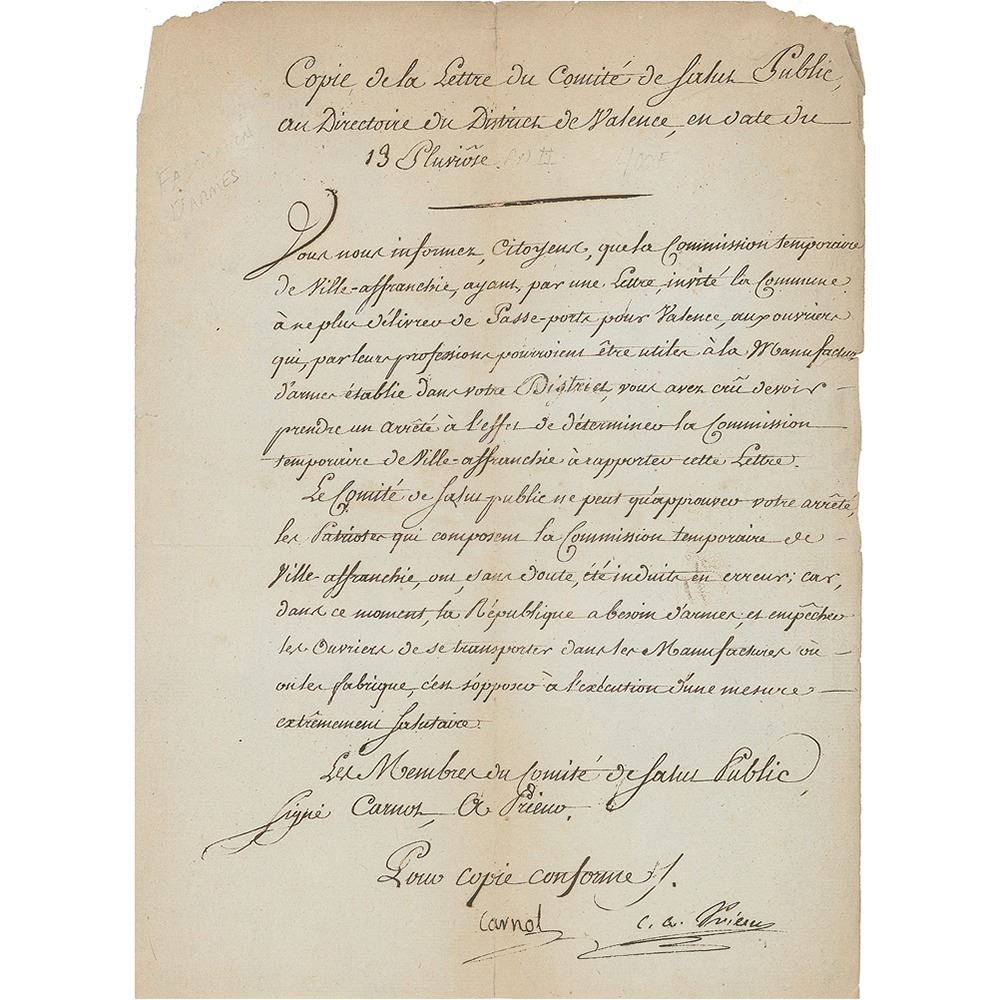 Copie de la Lettre du Comité de Salut Public,
au Directoire du District de Valence, en date du
13 Pluviôse. AN II 400 F
FABRICATION
D'ARMES
Vous nous informez, Citoyens, que la Commission temporaire
de Ville-affranchie, ayant, par une Lettre, invité la Commune
à ne plus délivrer de Passe-ports pour Valence, aux ouvriers
qui, par leurs professions pourroient être utiles à la Manufacture
d'armes établie dans votre District, vous avez crû devoir
prendre un arrêté à l'effet de déterminer la Commission
temporaire de Ville-affranchie à rapporter cette Lettre.
Le Comité de Salut public ne peut qu'approuver votre arrêté,
les Patriotes qui composent la Commission temporaire de
Ville-affranchie, ont, sans doute, été induits en erreur; car,
dans ce moment, la République a besoin d'armes, et empêcher
les Ouvriers de se transporter dans les Manufactures où
on les fabrique, c'est s'opposer à l'exécution d'une mesure
extrêmement salutaire.
Les Membres du Comité de Salut Public,
Signé Carnot, CA Prieur.
Pour copie conforme /.
Carnot C. A. Prieur